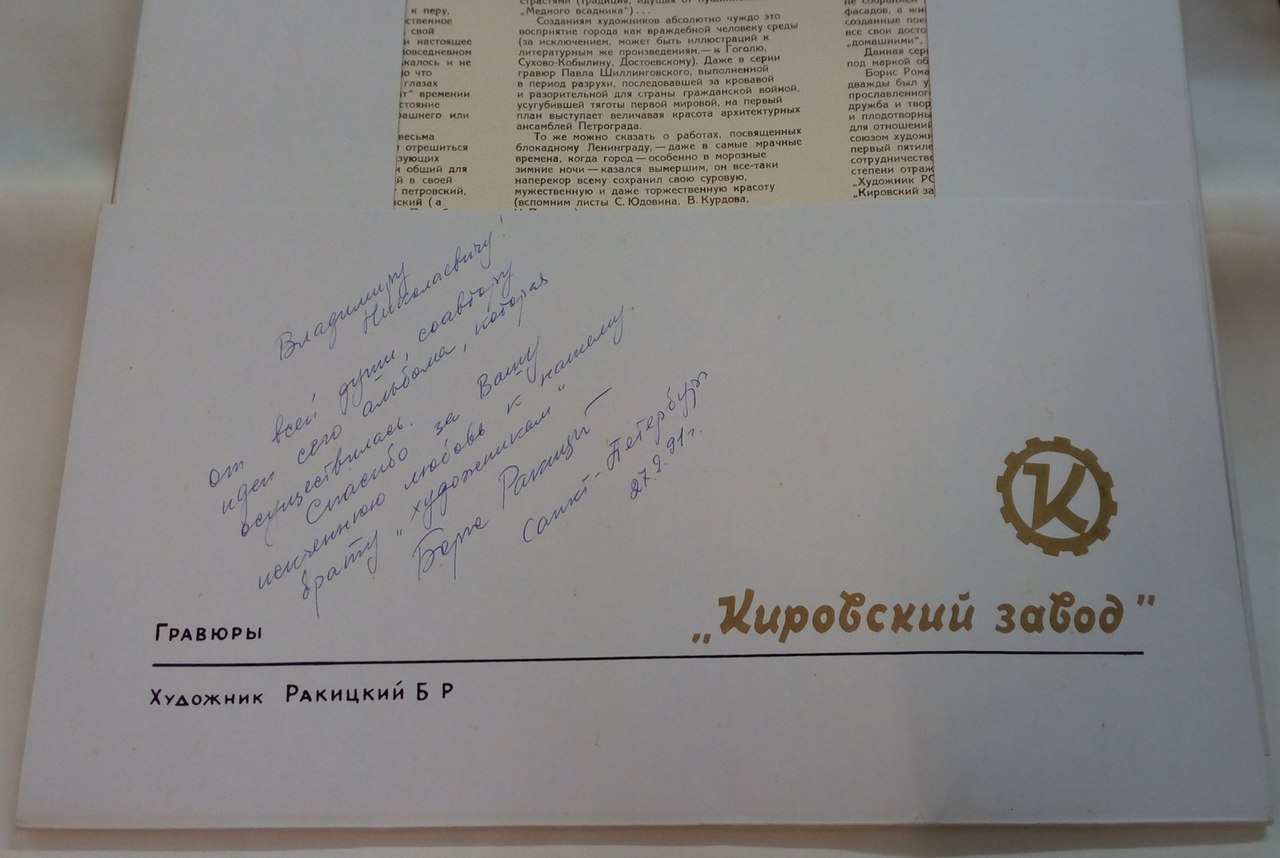 к перу,
ственное
свой
и настоящее
повседневном
казалось и не
о что
глазах
т" времении
стояние
рашнего или
весьма
отрешиться
зующих
и общий для
й в своей
петровский,
ский (а
страстями (традиция, идущая от
„Медного всадника")...
Созданиям художников абсолютно чуждо это
восприятие города как враждебной человеку среды
(за исключением, может быть иллюстраций к
литературным же произведениям,— к Гоголю,
Сухово-Кобылину, Достоевскому). Даже в серии
гравюр Павла Шиллинговского, выполненной
в период разрухи, последовавшей за кровавой
и разорительной для страны гражданской войной,
усугубившей тяготы первой мировой, на первый
план выступает величавая красота архитектурных
ансамблей Петрограда.
То же можно сказать о работах, посвященных
блокадному Ленинграду,— даже в самые мрачные
времена, когда город — особенно в морозные
зимние ночи — казался вымершим, он все-таки
наперекор всему сохранил свою суровую,
мужественную и даже торжественную красоту
(вспомним листы С. Юдовина, В. Курдова,
фасадов, а жи
созданные пок
все свои досто
„домашними",
Данная сер
под маркой об
Борис Рома
дважды был у
прославленног
дружба и твор
и плодотворны
для отношений
союзом художн
первый пятиле
сотрудничестве
степени отраж
„Художник РС
„Кировский за
Владимиру
Николаевичу!
от всей души, соавтору
идеи сего альбома, которая
осуществилась.
Спасибо за Вашу
искреннюю любовь к нашему
брату „художникам"
Ракицкий
Санкт-Петербург
27.9.91г.
К
„Кировский завод"
Гравюры
Художник Ракицкий Б Р